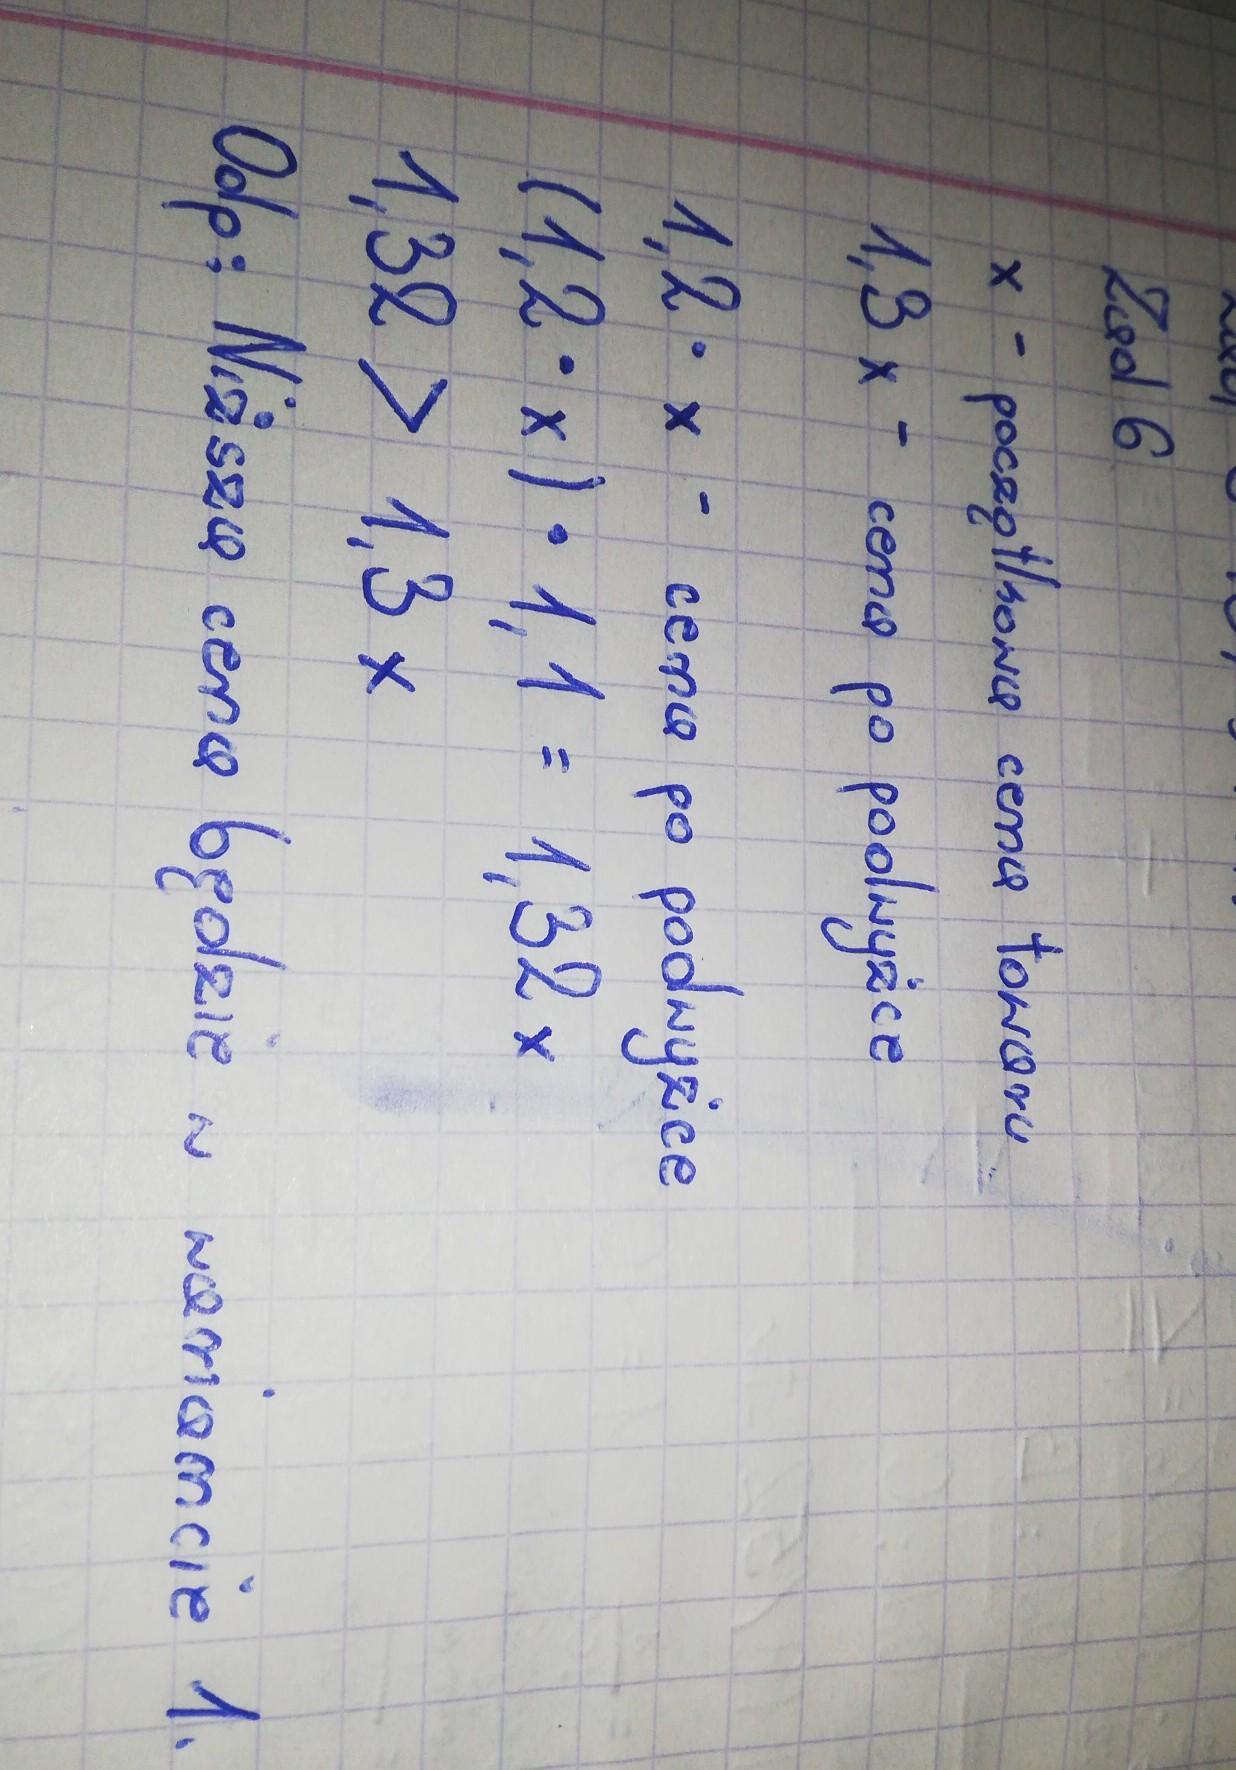 Zad 6
x - początkowa cena towaru
1,3 x - cena po podwyżce
1,2 · x - cena po podwyżce
(1,2 · x) · 1,1 = 1,32 x
1,32 > 1,3 x
Odp: Niższa cena będzie w wariancie 1.